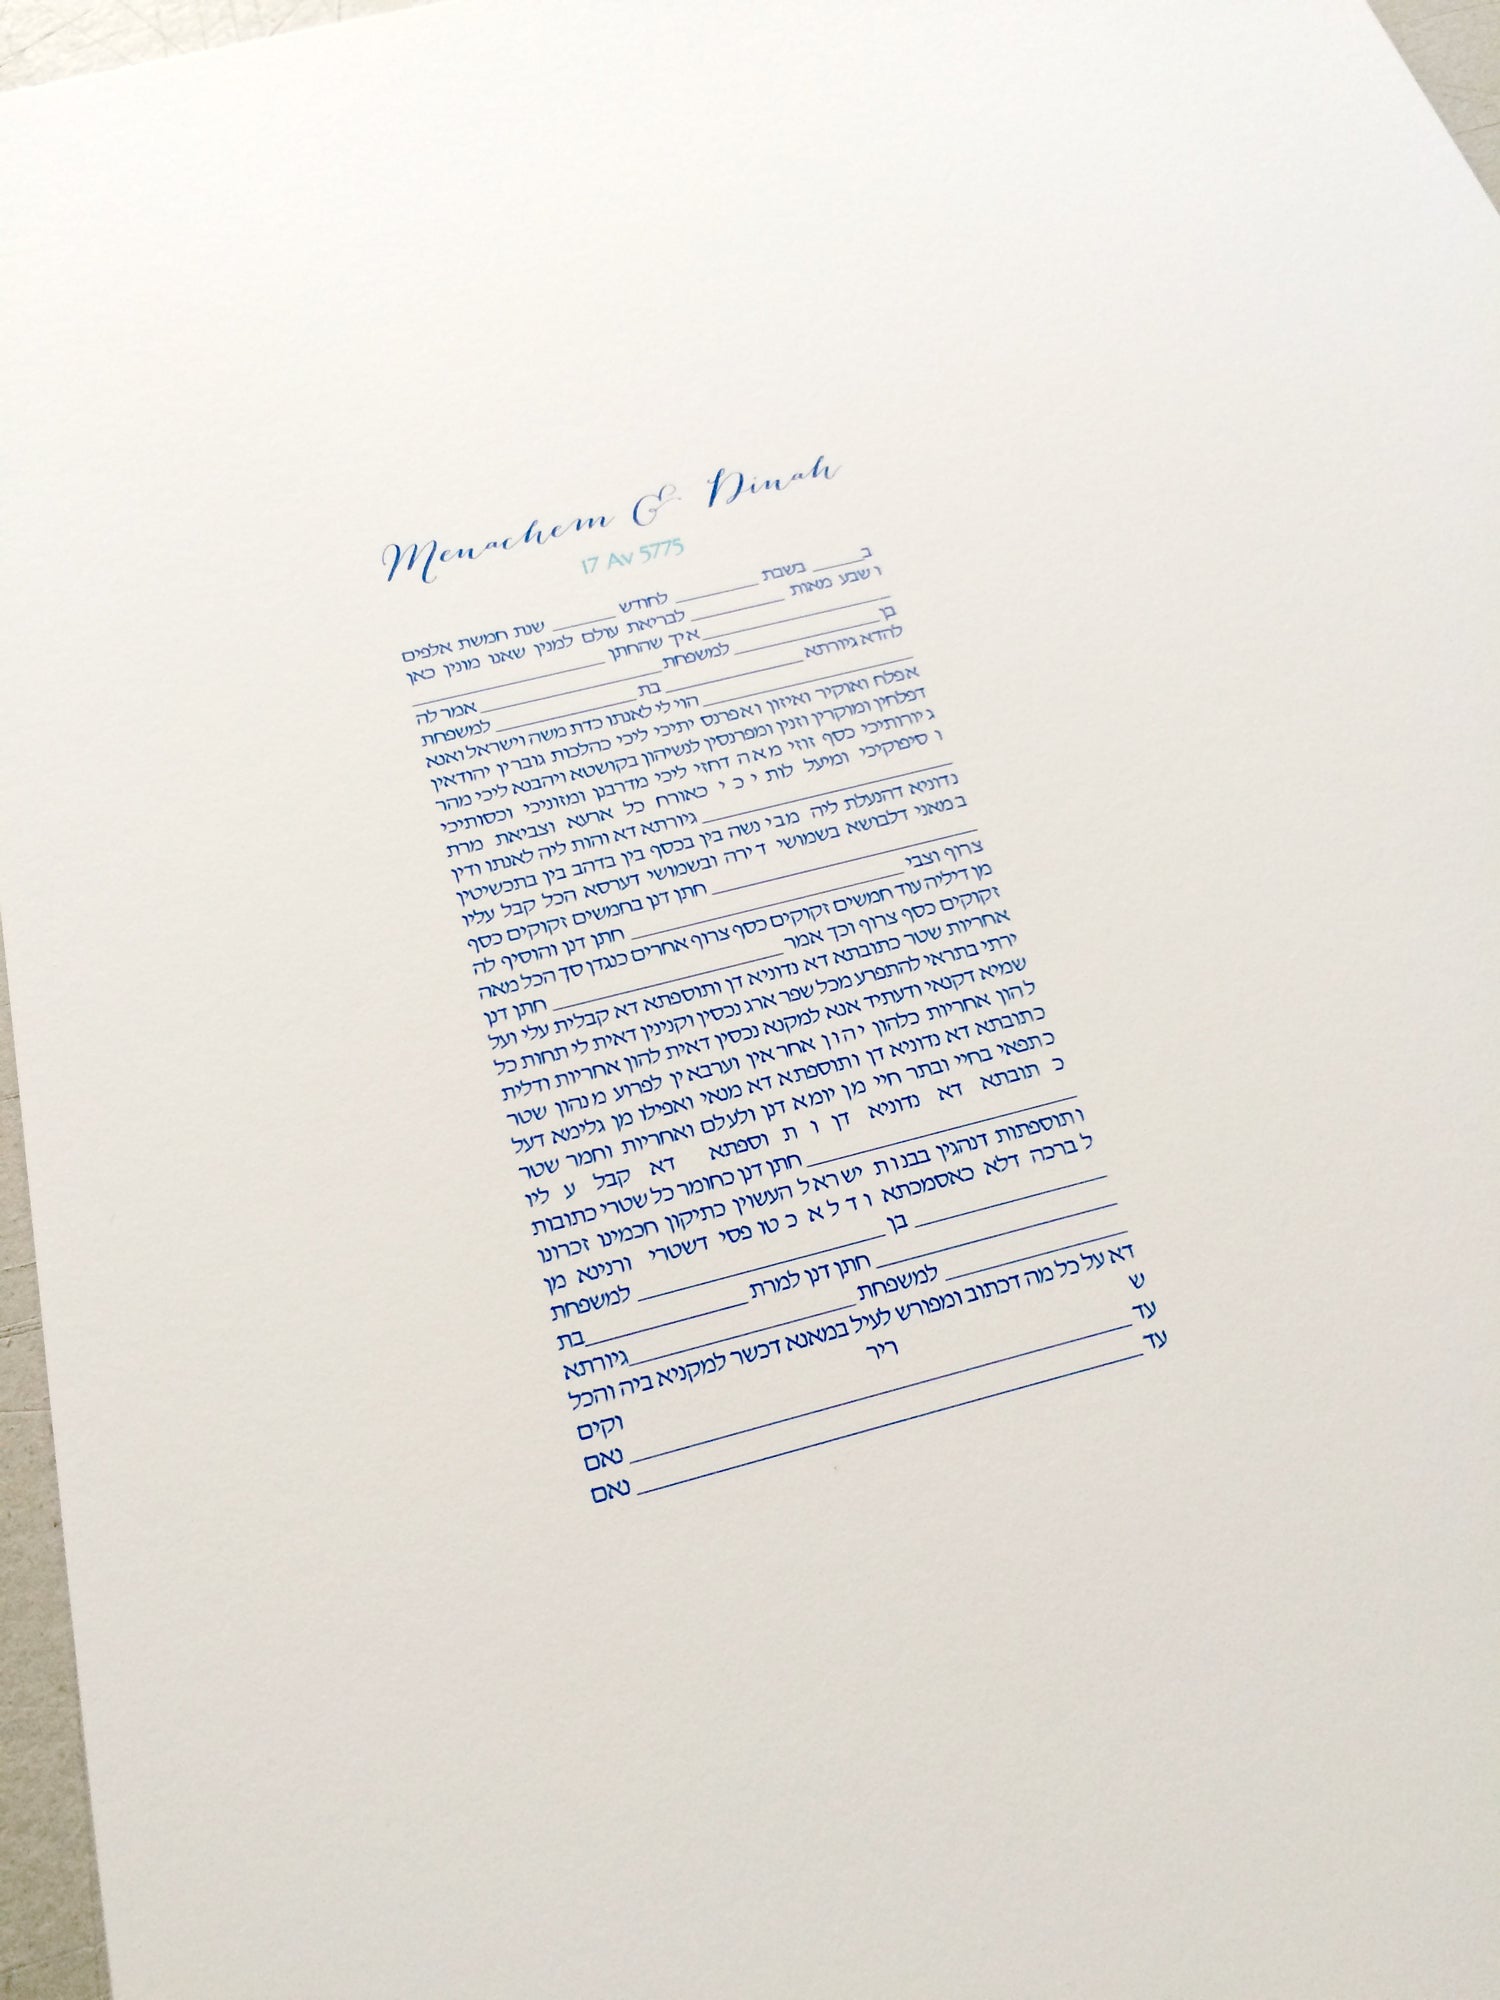 Menachem & Dinah
17 Av 5775
ב_____ בשבת ________ לחודש ________ שנת חמשת אלפים
ו שבע מאות ________ לבריאת עולם למנין שאנו מונין כאן
________ איך שהחתן ________
בן ________ למשפחת ________ אמר לה
להדא גיורתא ________ בת ________ למשפחת
________ הוי לי לאנתו כדת משה וישראל ואנא
אפלח ואוקיר ואיזון ואפרנס יתיכי ליכי כהלכות גוברין יהודאין
דפלחין ומוקרין וזנין ומפרנסין לנשיהון בקושטא ויהבנא ליכי מהר
גיורותיכי כסף זוזי מאה דחזי ליכי מדרבנן ומזוניכי וכסותיכי
ו סיפוקיכי ומיעל לות י כ י כאורח כל ארעא וצביאת מרת
________ גיורתא דא והות ליה לאנתו ודין
נדוניא דהנעלת ליה מבי נשה בין בכסף בין בדהב בין בתכשיטין
במאני דלבושא בשמושי דירה ובשמושי דערסא הכל קבל עליו
________ חתן דנן בחמשים זקוקים כסף
צרוף וצבי ________ חתן דנן והוסיף לה
מן דיליה עוד חמשים זקוקים כסף צרוף אחרים כנגדן סך הכל מאה
זקוקים כסף צרוף וכך אמר ________ חתן דנן
אחריות שטר כתובתא דא נדוניא דן ותוספתא דא קבלית עלי ועל
ירתי בתראי להתפרע מכל שפר ארג נכסין וקנינין דאית לי תחות כל
שמיא דקנאי ודעתיד אנא למקנא נכסין דאית להון אחריות ודלית
להון אחריות כלהון יהון אחראין וערבאין לפרוע מנהון שטר
כתובתא דא נדוניא דן ותוספתא דא מנאי ואפילו מן גלימא דעל
כתפאי בחיי ובתר חיי מן יומא דנן ולעלם ואחריות וחמר שטר
כ תובתא דא נדוניא דן ו ת וספתא דא קבל ע ליו
________ חתן דנן כחומר כל שטרי כתובות
ותוספתות דנהגין בבנות ישראל העשוין כתיקון חכמינו זכרונו
ל ברכה דלא כאסמכתא ו ד ל א כ טו פסי דשטרי ורנינא מן
________ בן ________ למשפחת
________ חתן דנן למרת ________ בת
________ למשפחת ________ גיורתא
דא על כל מה דכתוב ומפורש לעיל במאנא דכשר למקניא ביה והכל
ש ריר וקים
עד ________ נאם
עד ________ נאם